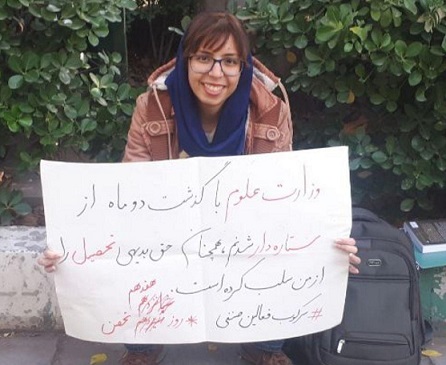 وزارت علوم با گذشت دو ماه از
ستاره دار شدنم، همچنان حق بدیهی تحصیل را
از من سلب کرده است.
هفدهم
#سرکوب فعالین صنفی * روز تحصن